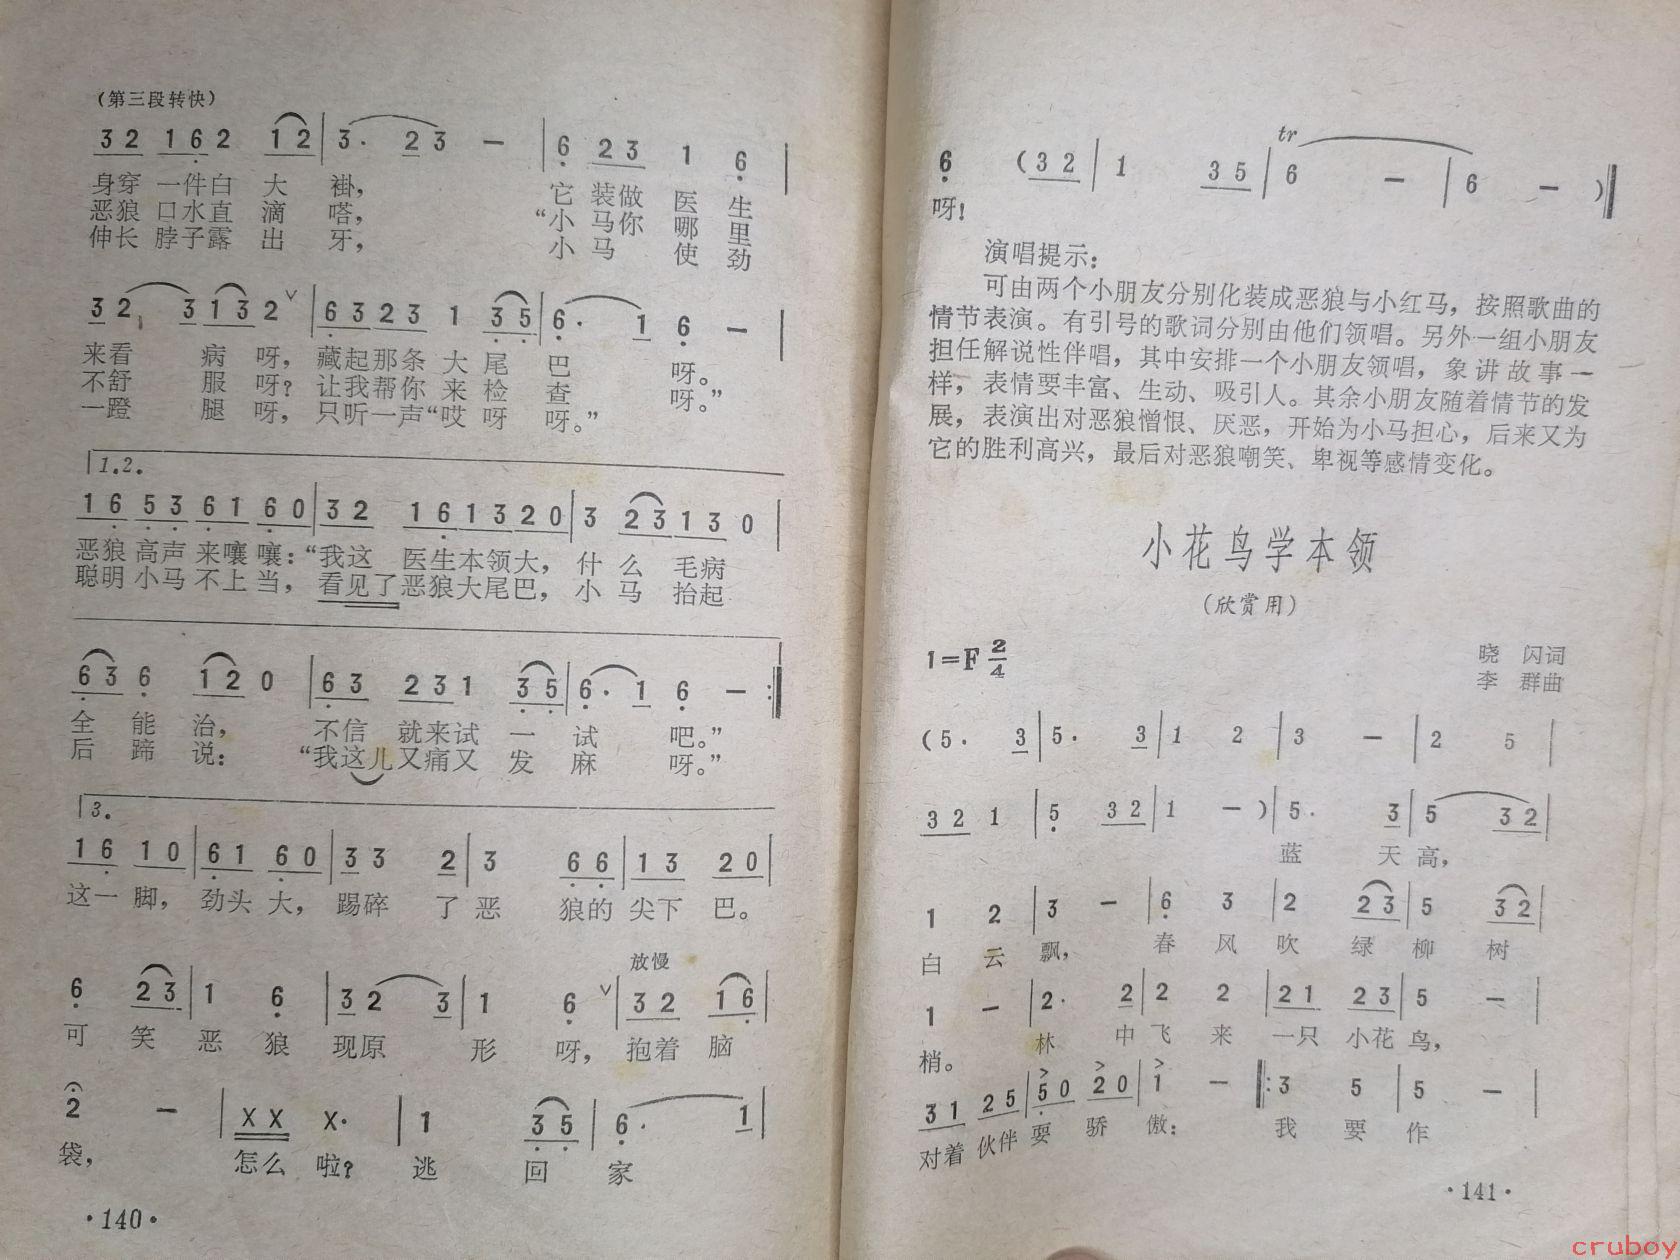 （第三段转快）
3 2 1 6 2 1 2 | 3 · 2 3 — | 6 2 3 1 6 |
身穿 一件白 大 褂， 它 装做 医 生
恶狼 口水直 滴 嗒， “小 马你 哪 里
伸长 脖子露 出 牙， 小 马 使 劲
3 2 3 1 3 2 ∨ | 6 3 2 3 1 3 5 | 6 · 1 6 — |
来看 病 呀， 藏起那条 大 尾 巴 呀。
不舒 服 呀？ 让我帮你 来 检 查 呀。”
一蹬 腿 呀， 只听一声“哎 呀 呀。”
1.2.
1 6 5 3 6 1 6 0 | 3 2 1 6 1 3 2 0 | 3 2 3 1 3 0 |
恶狼 高声 来嚷 嚷：“我这 医生本领大， 什 么 毛病
聪明 小马 不上 当， 看见了恶狼大尾巴， 小 马 抬起
6 3 6 1 2 0 | 6 3 2 3 1 3 5 | 6 · 1 6 — :|
全 能 治， 不信 就来试 一 试 吧。”
后 蹄 说： “我这儿又痛又 发 麻 呀。”
3.
1 6 1 0 | 6 1 6 0 | 3 3 2 | 3 6 6 | 1 3 2 0 |
这一 脚， 劲头 大， 踢碎 了 恶 狼的 尖下 巴。
放慢
6 2 3 1 6 | 3 2 3 | 1 6 ∨ | 3 2 1 6 |
可 笑 恶 狼 现原 形 呀， 抱着 脑
2 — | X X X · | 1 3 5 | 6 · 1 |
袋， 怎么 啦？ 逃 回 家
·140·
tr
6 （3 2 | 1 3 5 | 6 — | 6 — ）‖
呀！
演唱提示：
可由两个小朋友分别化装成恶狼与小红马，按照歌曲的
情节表演。有引号的歌词分别由他们领唱。另外一组小朋友
担任解说性伴唱，其中安排一个小朋友领唱，象讲故事一
样，表情要丰富、生动、吸引人。其余小朋友随着情节的发
展，表演出对恶狼憎恨、厌恶，开始为小马担心，后来又为
它的胜利高兴，最后对恶狼嘲笑、卑视等感情变化。
小花鸟学本领
（欣赏用）
1=F 2/4
晓 闪词
李 群曲
（5 · 3 | 5 · 3 | 1 2 | 3 — | 2 5 |
3 2 1 | 5 3 2 | 1 — ）| 5 · 3 | 5 3 2 |
蓝 天 高，
1 2 | 3 — | 6 3 | 2 2 3 | 5 3 2 |
白 云 飘， 春 风 吹 绿 柳 树
1 — | 2 · 2 | 2 2 | 2 1 2 3 | 5 — |
梢。 林 中 飞 来 一只 小花 鸟，
3 1 2 5 | 5 0 2 0 | 1 — |: 3 5 | 5 — |
对着 伙伴 耍 骄 傲： 我 要 作
·141·
cruboy